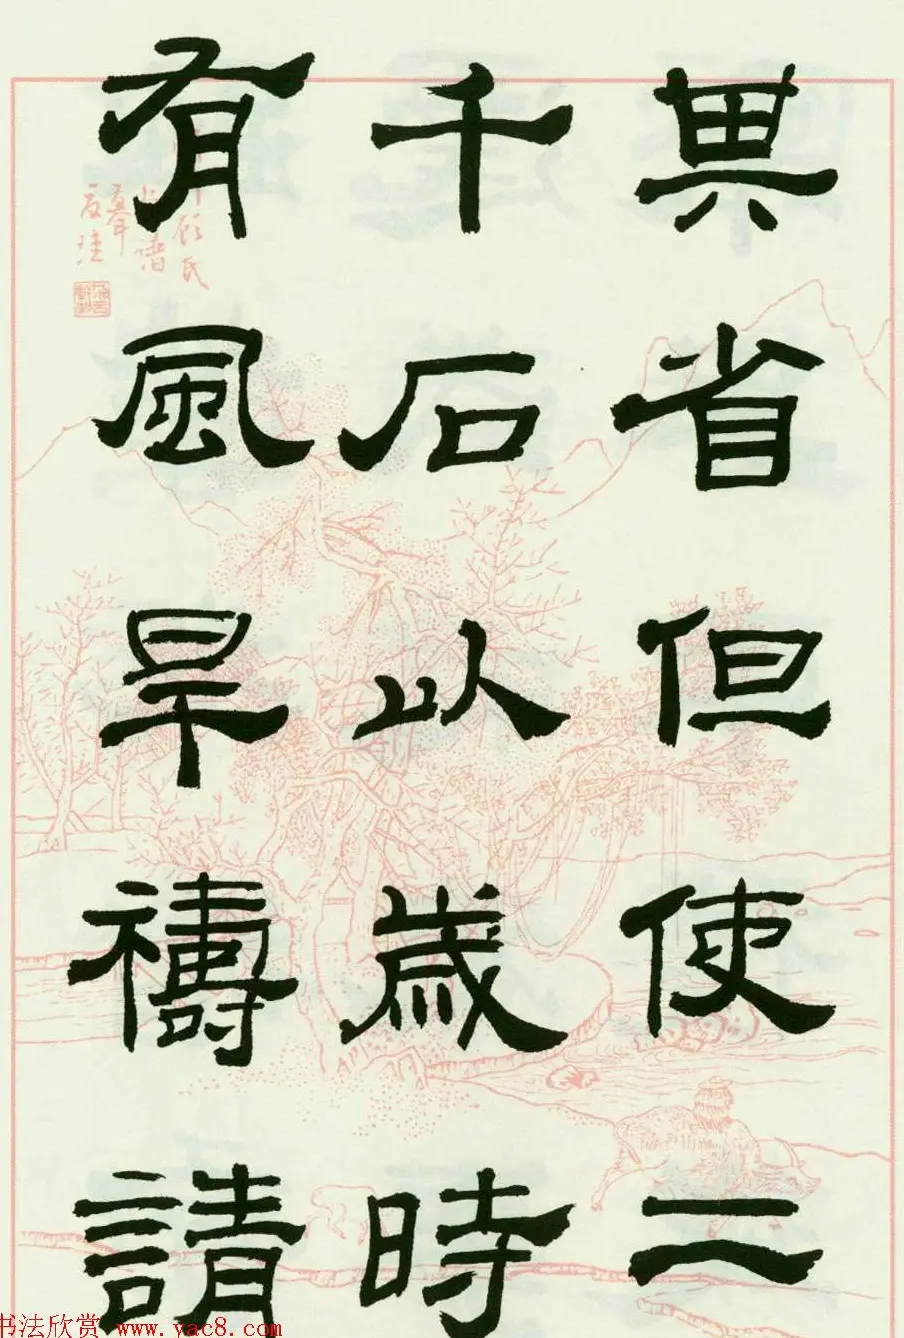 其省但使二
千石以歲時
有風旱禱請
书法欣赏 www.yac8.com